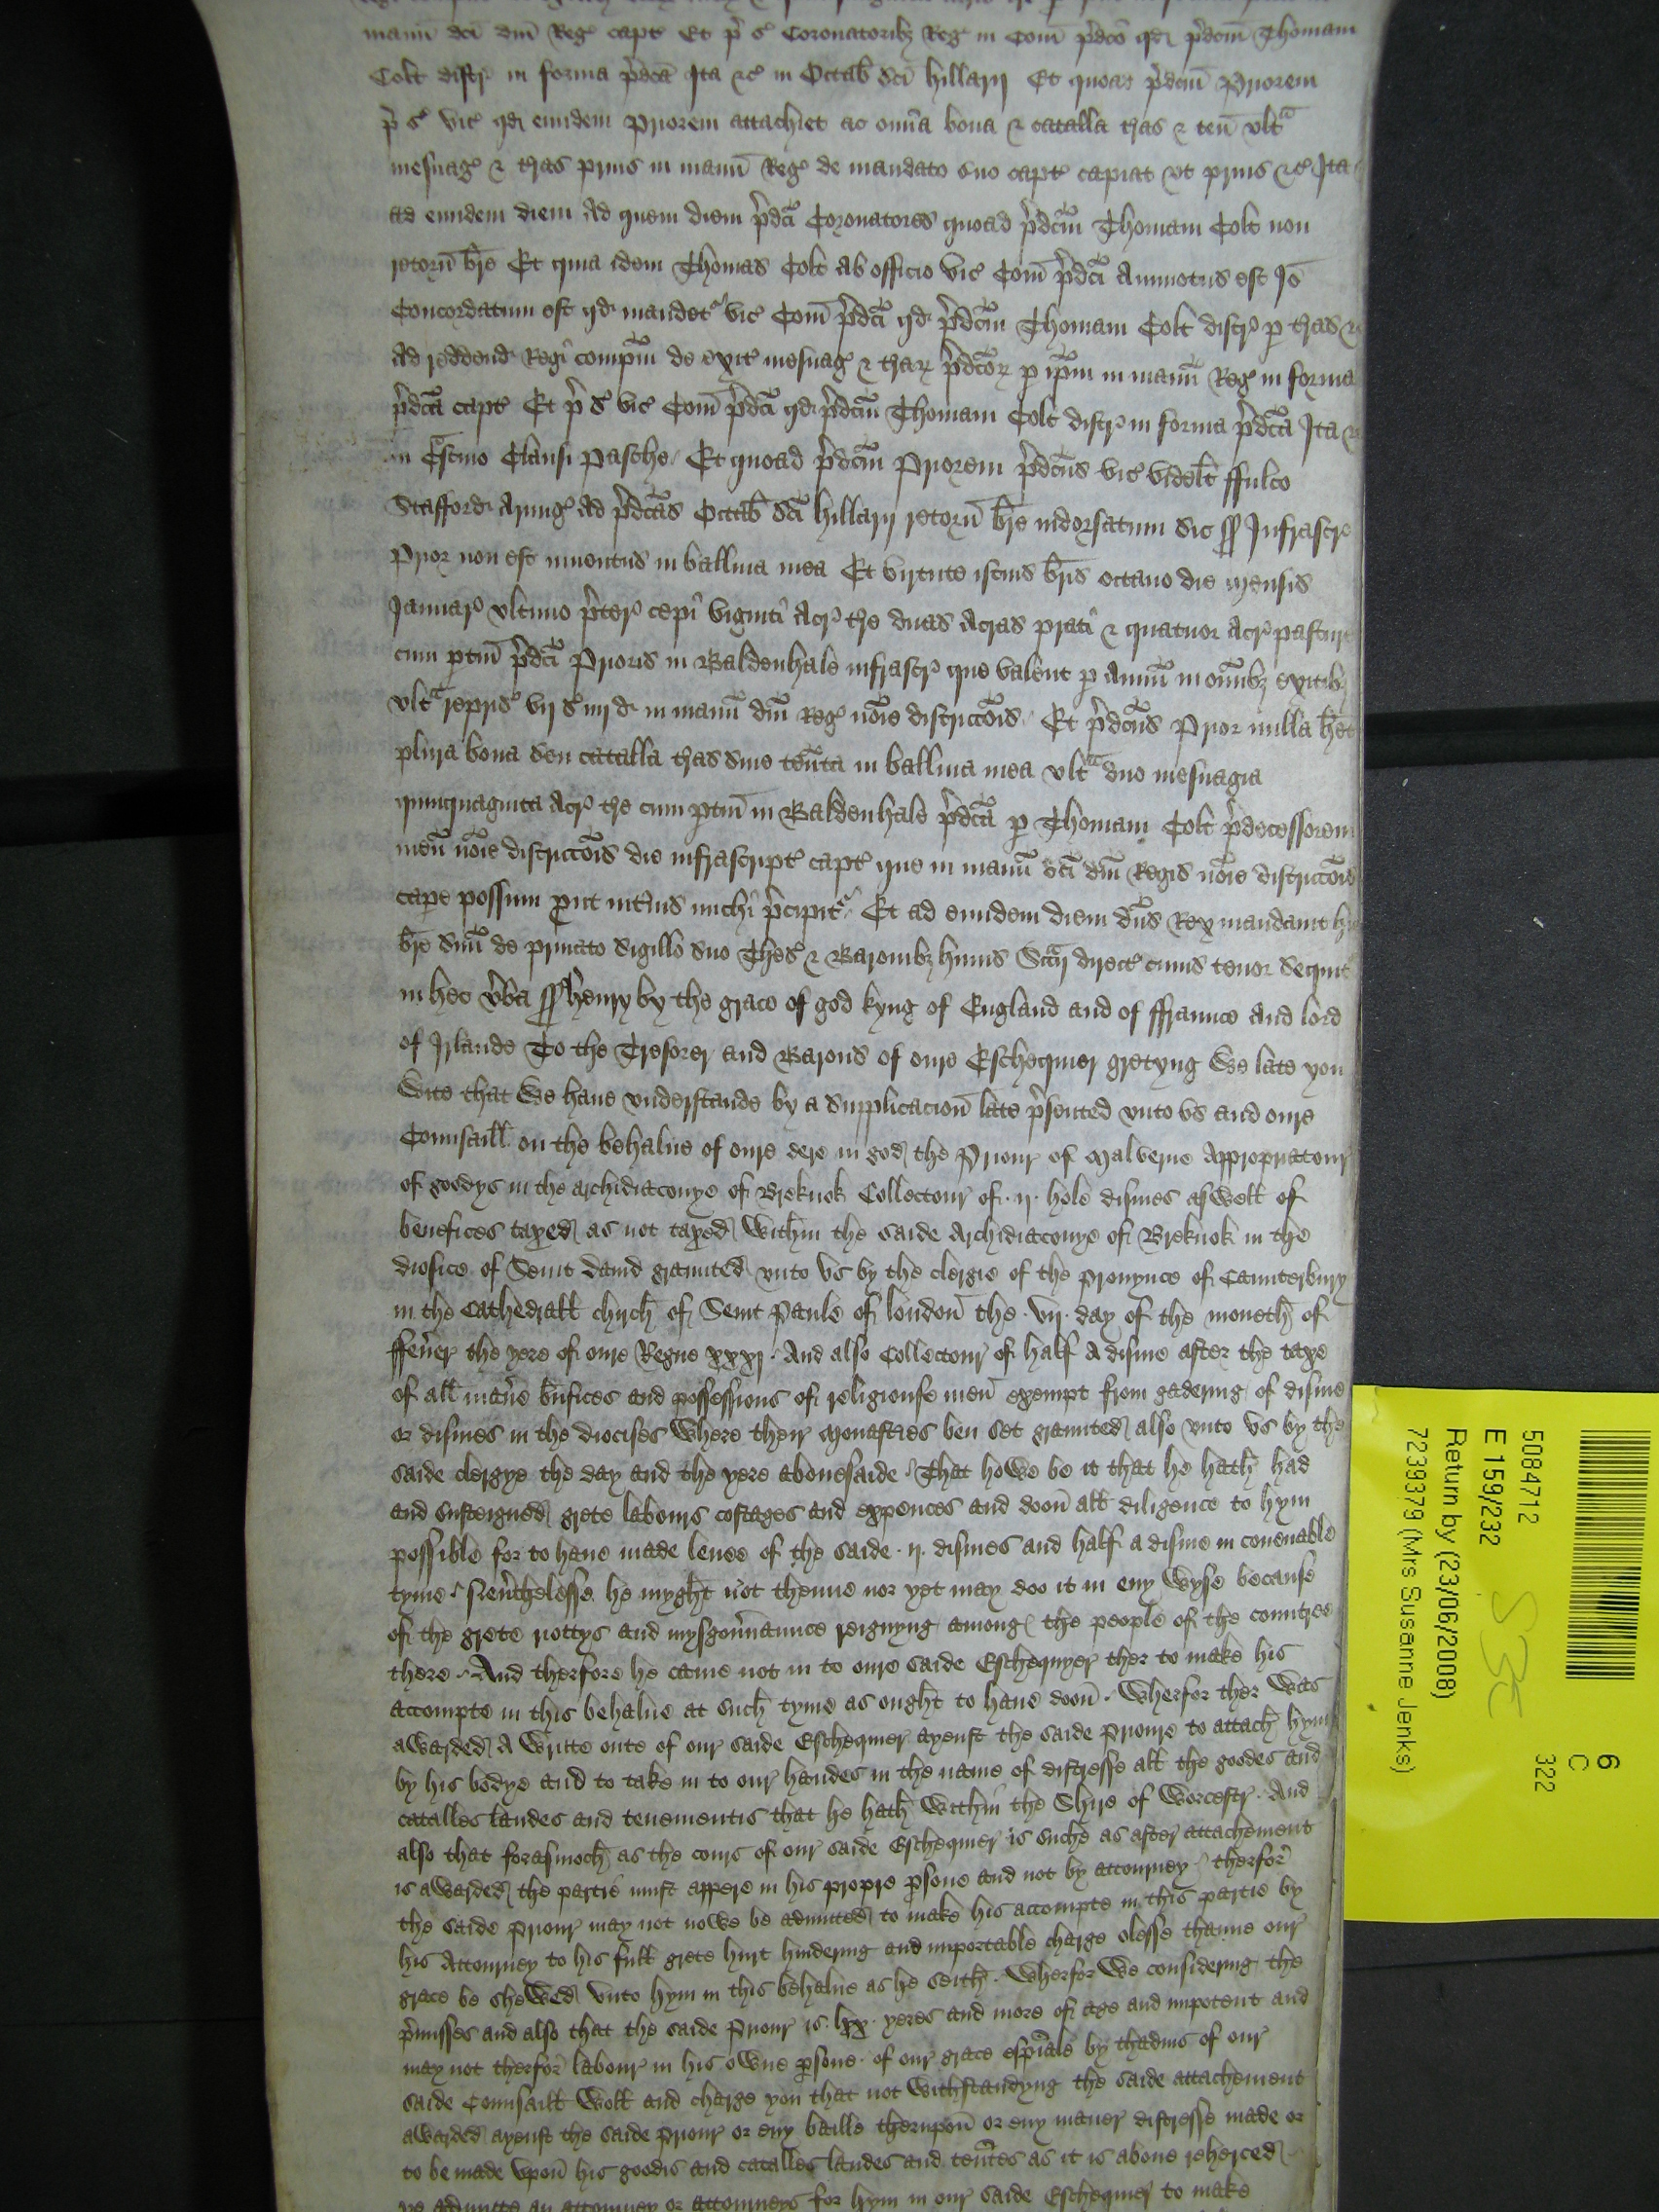 manũ dcĩ dnĩ Regꝭ capt Et p̃ ẽ Coronatoribꝫ Regꝭ in Com̃ p̃dcõ qd p̃dcm̃ Thomam
Colt distrꝭ in forma p̃dcã Ita ⁊cꝭ in Octab̃ Scĩ hillarij Et quoad p̃dcm̃ Priorem
p̃ ẽ vicꝭ qd eundem Priorem attachiet ac om̃ia bona ⁊ catalla t̃ras ⁊ teñ vltᵃ
mesuagꝭ ⁊ t̃ras prius in manũ Regꝭ de mandato suo captꝭ capiat vt prius ⁊cꝭ Ita
ad eundem diem Ad quem diem p̃dcĩ Coronatores quoad p̃dcm̃ Thomam Colt non
retorñ br̃e Et quia idem Thomas Colt ab officio vicꝭ Com̃ p̃dcĩ Ammotus est Iõ
Concordatum est qd mandetʳ vicꝭ Com̃ p̃dcĩ qd p̃dcm̃ Thomam Colt distrꝭ p t̃ras ⁊cꝭ
Ad reddend Regi comp̃m de exitꝭ mesuagꝭ ⁊ t̃raꝝ p̃dcõꝝ p ip̃m in manũ Regꝭ in forma
p̃dcã captꝭ Et p̃ ẽ vicꝭ Com̃ p̃dcĩ qd p̃dcm̃ Thomam Colt distrꝭ in forma p̃dcã Ita ⁊cꝭ
in Cᵃstino Clausi Pasche Et quoad p̃dcm̃ Priorem p̃dcũs vicꝭ videlt ffulco
Stafford Armigꝭ ad p̃dcãs Octab̃ Scĩ hillarij retorñ br̃e indorsatum sic ʃʃ Infrascrꝭ
Prior non est inuentus in balliua mea Et virtute istius br̃is octauo die Mensis
Januarꝭ vltimo p̃terꝭ cepi viginti Acrꝭ t̃re duas Acras prati ⁊ quatuor Acrꝭ pasture
cum ptiñ p̃dcĩ Prioris in Baldenhale infrascrꝭ que valent p Annũ in om̃ibꝫ exitibꝫ
vltᵃ reprisꝭ vij s̃ iiij d in manũ dnĩ Regꝭ noĩe districcõis Et p̃dcũs Prior nulla h̃et
plura bona seu catalla t̃ras siue ten̄ta in balliua mea vltᵃ duo mesuagia
quinquaginta Acrꝭ t̃re cum ptiñ in Baldenhale p̃dcã p Thomam Colt p̃decessorem
meũ noĩe districcõis die infrascriptꝭ captꝭ que in manũ dcĩ dnĩ Regis noĩe districcõis
cape possum put int̃ius michi p̃cipitʳ Et ad eundem diem dñs Rex mandauit hic
br̃e suũ de priuato sigillo suo Thesꝭ ⁊ Baronibꝫ huius Scᵃcij directꝭ cuius tenor sequitʳ
in hec ṽba ʃʃ henry by the grace of god kyng of England and of ffraunce and lord
of Irlande To the Tresorer and Barons of oure Eschequier gretyng We late you
Wite that We haue vnderstande by a supplicacioñ late p̃sented vnto vs and oure
Counsaill on the behalue of oure dere in god the Priour of Malverne Appropriatour
of goodys in the archidiaconye of Breknok Collectour of .ij. hole dismes aswell of
benefices taxed as not taxed Within the saide Archidiaconye of Breknok in the
diosice of Seint Dauid graunted vnto vs by the clergie of the prouynce of Caunterbury
in the Cathedrall chirch of Seint Paule of londoñ the .vij. day of the moneth of
ffeu̾er the yere of oure Regne xxxj. And also Collectour of half a disme after the taxe
of all mañe bñfices and possessions of religiouse meñ exempt from gadering of disme
or dismes in the diocises Where their Monastres ben set graunted also vnto vs by the
saide clergye the day and the yere abouesaide That howe be it that he hath had
and susteigned grete labours costages and expences and dooñ all diligence to hym
possible for to haue made leuee of the saide .ij. dismes and half a disme in couenable
tyme Neu̾thelesse he myght not thenne nor yet may doo it in eny Wyse because
of the grete riottys and mysgou̾naunce reignyng among the people of the countree
there And therfore he came not in to oure saide Eschequyer ther to make his
accompte in this behalue at such tyme as ought to haue dooñ Wherfor ther Was
aWarded A Writte oute of our saide Eschequier ayenst the saide Prioure to attach hym
by his bodye and to take in to our handes in the name of distresse all the goodes and
catalles landes and tenementis that he hath Within the Shire of Worcestr And
also that forasmoch as the cours of our saide Eschequier is suche as after attachement
is aWarded the partie must appere in his propre psone and not by attourney therfor
the saide Priour may not nowe be admitted to make his accompte in this partie by
his Attourney to his full grete hurt hindering and importable charge olesse thanne our
grace be sheWed vnto hym in this behalue as he seith Wherfor We considering the
p̃misses and also that the saide Priour is lxx yeres and more of age and impotent and
may not therfor labour in his oWne psone of our grace esp̃iale by thaduis of our
saide Counsaill Woll and charge you that not Withstandyng the saide attachement
aWarded ayenst the saide Priour or eny baille therupoñ or eny maner distresse made or
to be made vpoñ his goodis and catalles landes and teñtes as it is aboue reherced
ye admitte an attourney or attourneys for hym in our saide Eschequier to make
5084712
E 159/232
Return by (23/06/2008)
7239379 (Mrs Susanne Jenks)
6
C
322